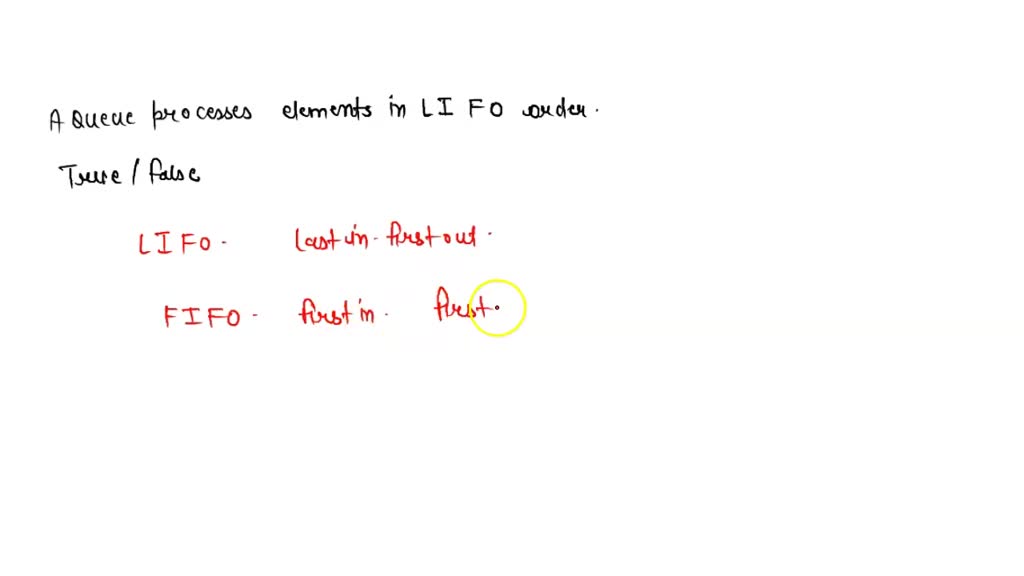 A Queue processes elements in LIFO order.
True / false
LIFO. last in. first out.
FIFO. first in. first.